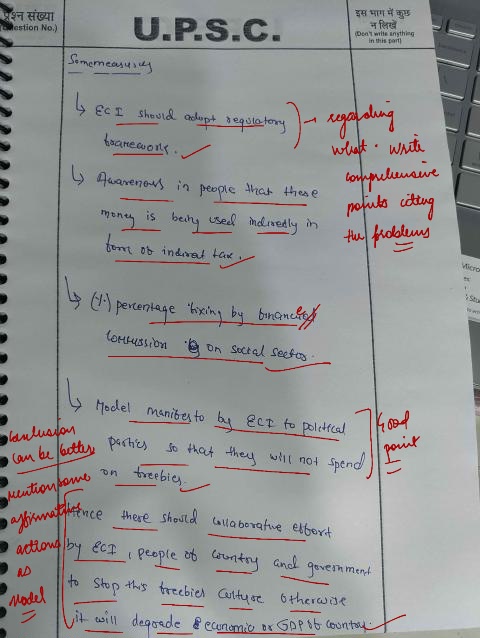 प्रश्न संख्या
(Question No.)
U.P.S.C.
इस भाग में कुछ
न लिखें
(Don't write anything
in this part)
Some measures
↳ ECI should adopt regulatory
frameworks.
→ regarding
what. write
comprehensive
points citing
the problems
↳ Awareness in people that these
money is being used indirectly in
form of indirect tax.
↳ (%) percentage fixing by finance
commission on social sector.
↳ Model manifesto by ECI to political
parties so that they will not spend
on freebies.
Good
point
Conclusion
can be better
mention some
affirmative
actions
as
model
Hence there should collaborative effort
by ECI, people of country and government
to stop this freebies culture otherwise
it will degrade economic or GDP of country.